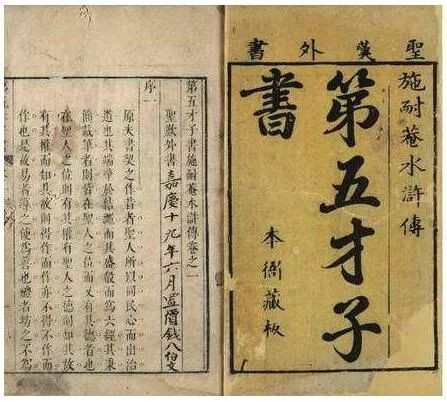 聖歎外書
施耐菴水滸傳
第五才子書
本衙藏板
第五才子書施耐菴水滸傳卷之一
聖歎外書 嘉慶十九年六月置價錢八伯文
序一
原夫書契之作昔者聖人所以同民心而出治
道也其端肇於結繩而其盛殽而爲六經其秉
簡載筆者則皆在聖人之位而又有其德者也
在聖人之位則有其權有聖人之德則知其故
有其權而知其故則得作而作亦不得不作而
作也是故易者導之使爲善也禮者坊之不爲